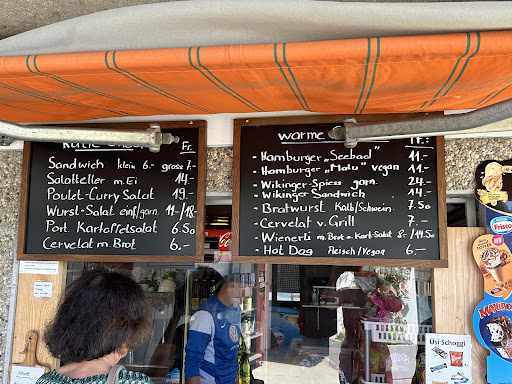 Fr.
Sandwich klein 6.- gross 7.-
Salatteller m. Ei 14.-
Poulet-Curry Salat 19.-
Wurst-Salat einf/garn. 11.-/18.-
Port. Kartoffelsalat 6.50
Cervelat m. Brot 6.-
warme Fr.
- Hamburger "Seebad" 11.-
- Hamburger "Malu" vegan 11.-
- Wikinger-Spiess garn. 24.-
- Wikinger Sandwich 14.-
- Bratwurst Kalb/Schwein 7.50
- Cervelat v. Grill 7.-
- Wienerli m. Brot o. Kart-Salat 8.-/14.50
- Hot Dog Fleisch/Vegan 6.-
Frisco
Üsi Schoggi